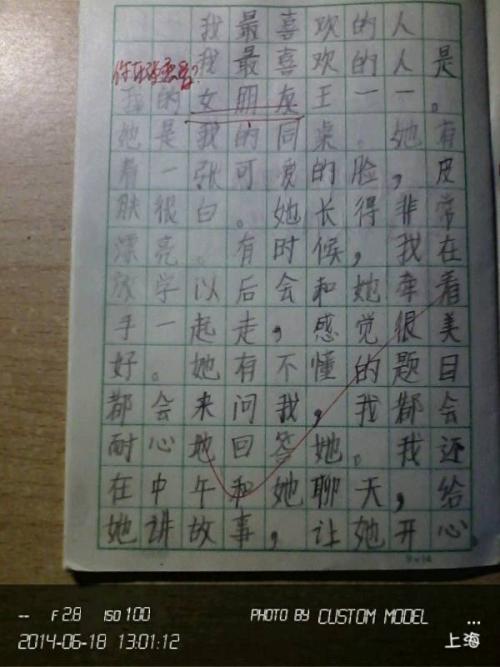 我最喜欢的人
我最喜欢的人是
你在谈恋爱?
我的女朋友王一一。
她是我的同桌。她有
着一张可爱的脸,皮
肤很白。她长得非常
漂亮。有时候,我在
放学以后会和她牵着
手一起走,感觉很美
好。她有不懂的题目
都会来问我,我都会
耐心地回答她。我还
在中午和她聊天,给
她讲故事,让她开心。
-- F 2.8 ISO 100 PHOTO BY CUSTOM MODEL ...
2014-06-18 13:01:12 上海